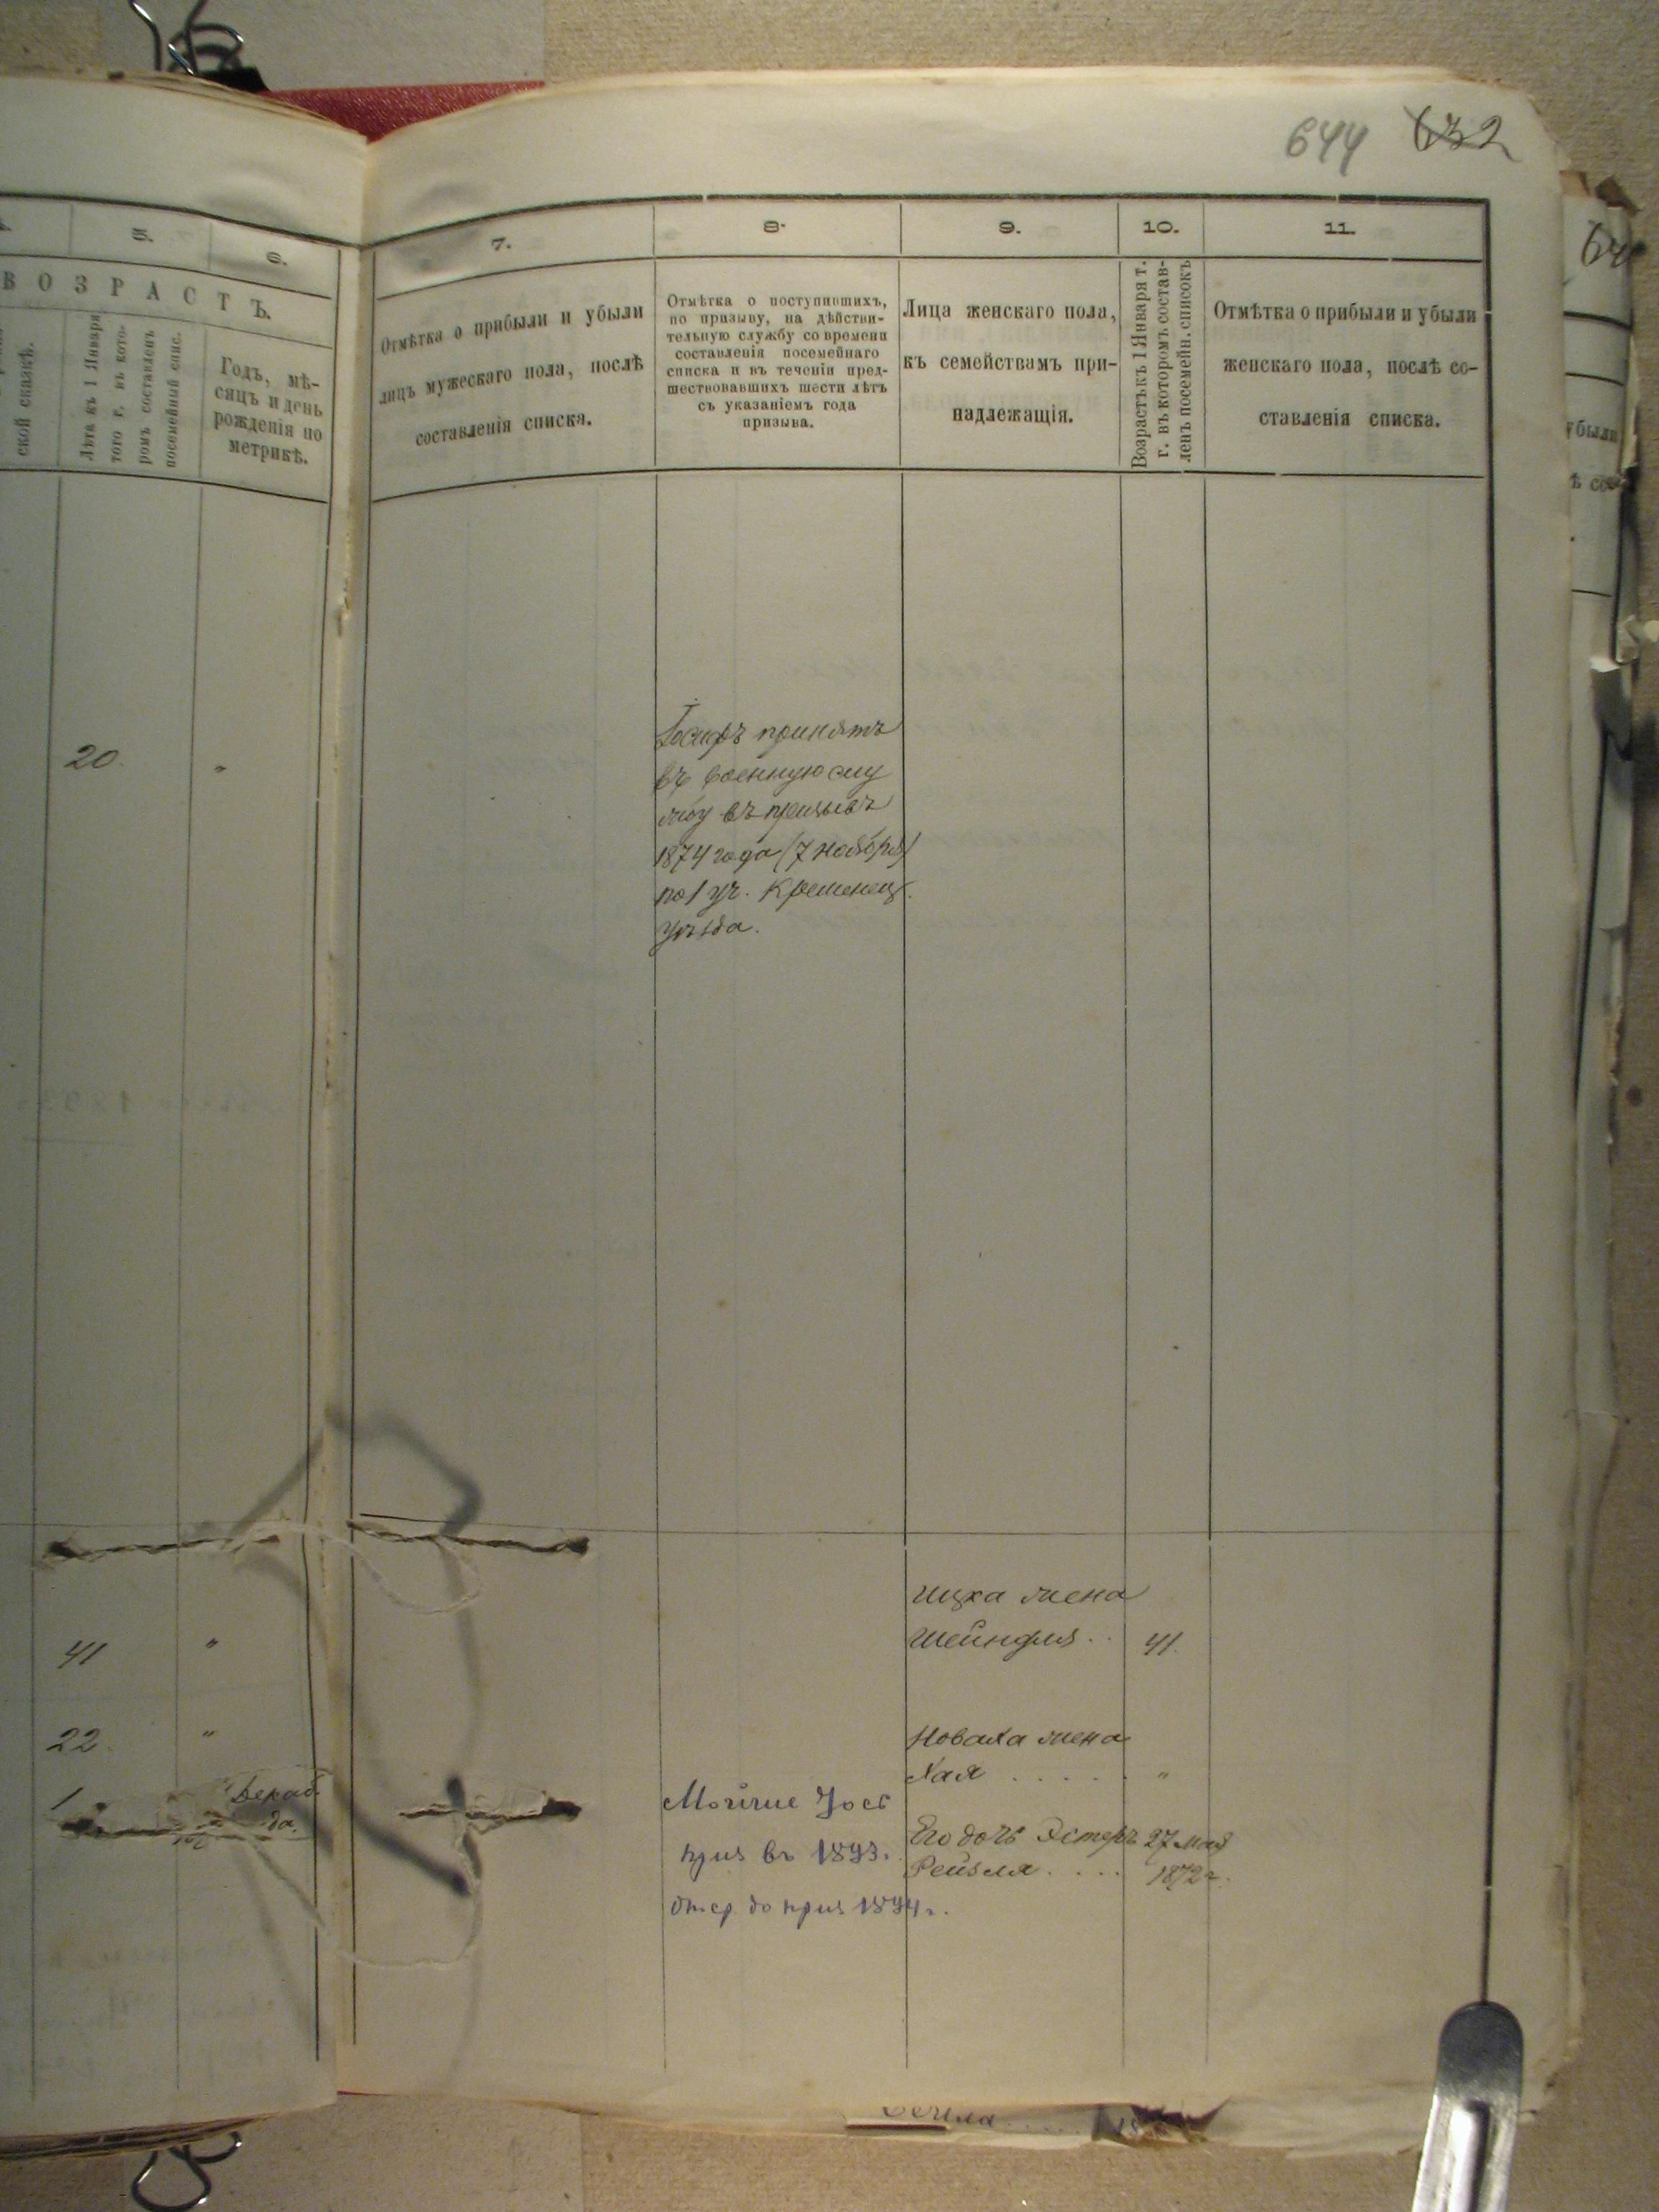 644 632
5.
6.
7.
8.
9.
10.
11.
ВОЗРАСТЪ.
ской сказкѣ.
Лѣта къ 1 Января
того г. въ кото-
ромъ составленъ
посемейный спис.
Годъ, мѣ-
сяцъ и день
рожденія по
метрикѣ.
Отмѣтка о прибыли и убыли
лицъ мужескаго пола, послѣ
составленія списка.
Отмѣтка о поступившихъ,
по призыву, на дѣйстви-
тельную службу со времени
составленія посемейнаго
списка и въ теченіи пред-
шествовавшихъ шести лѣтъ
съ указаніемъ года
призыва.
Лица женскаго пола,
къ семействамъ при-
надлежащія.
Возрастъ къ 1 Января т.
г. въ которомъ состав-
ленъ посемейн. списокъ
Отмѣтка о прибыли и убыли
женскаго пола, послѣ со-
ставленія списка.
убыли
20. "
Іосифъ принятъ
въ военную слу
жбу въ призывъ
1874 года (7 ноября)
по 1 уч. Кременец.
уѣзда.
41 "
Ицка жена
Шейндля .. 41.
22. "
Новаха жена
Хая ..... "
1
Декаб
Мойше Іось
приз въ 1893.
отср. до приз 1894 г.
Его дочь Эстеръ 27 Мая
Рейзля .... 1872 г.